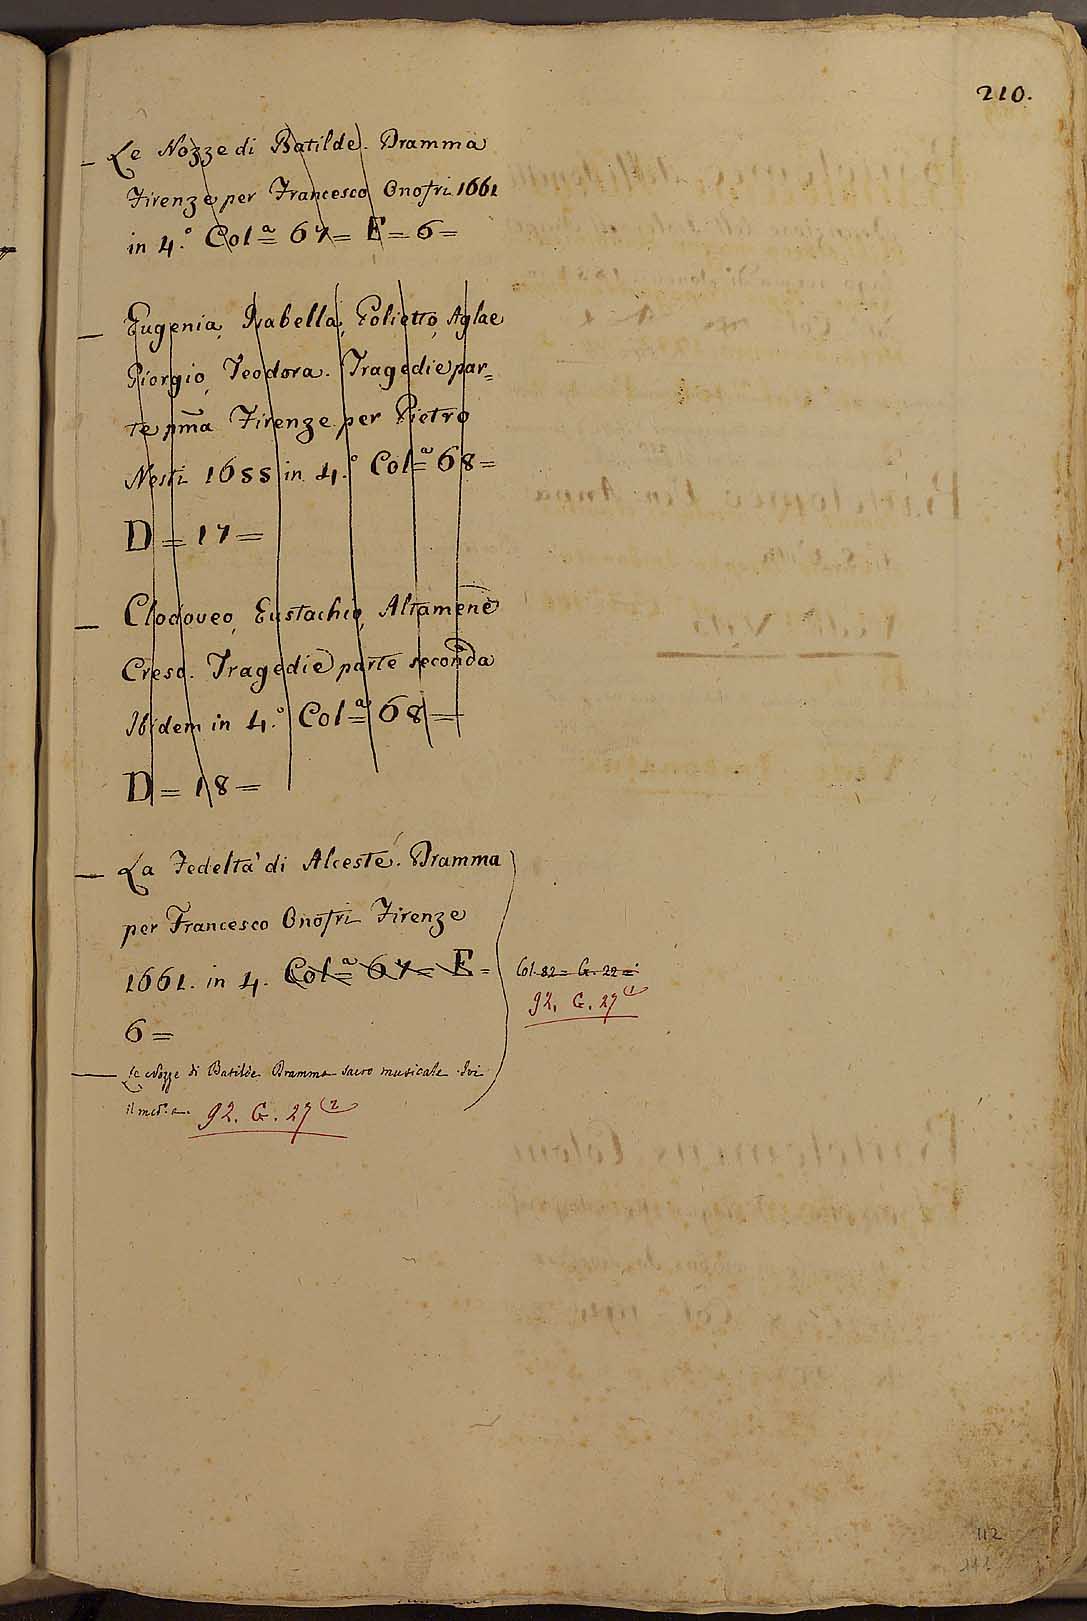 210.
– Le Nozze di Batilde. Dramma
Firenze per Francesco Onofri 1661
in 4.° Col.ª 67 = E = 6 =
– Eugenia, Isabella, Polietto, Aglae
Giorgio, Teodora. Tragedie par=
te pma Firenze per Pietro
Nesti 1655 in 4.° Col.ª 68 =
D = 17 =
– Clodoveo, Eustachio, Altamene
Creso. Tragedie parte seconda
Ibidem in 4.° Col.ª 68 =
D = 18 =
– La Fedeltà di Alceste. Dramma
per Francesco Onofri Firenze
1661. in 4. Col.ª 67 = E =
6 =
Col. 82 = G. 22 =
92. G. 27 (1
– Le Nozze di Batilde Dramma sacro musicale Ivi
il med.° a. 92. G. 27 (2
112